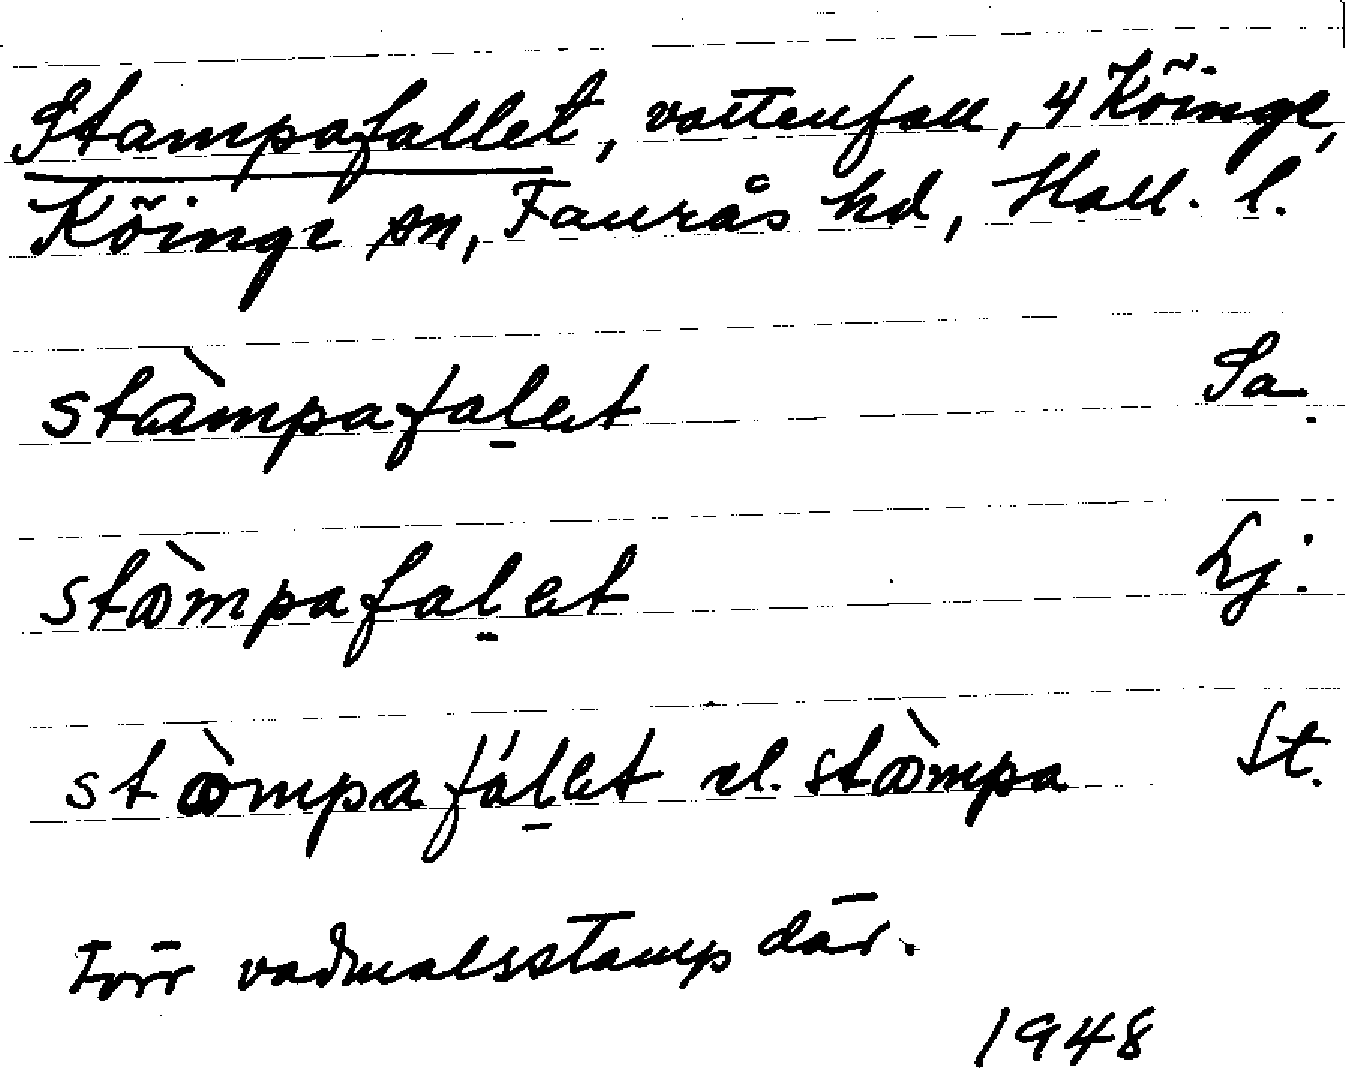 Stampafallet, vattenfall, 4 Köinge,
Köinge sn, Faurås hd, Hall. l.
stàmpafal̲et Sa.
stòmpafal̲et Lj.
stòmpafál̲et el. stòmpa St.
Förr vadmalsstamp där.
1948